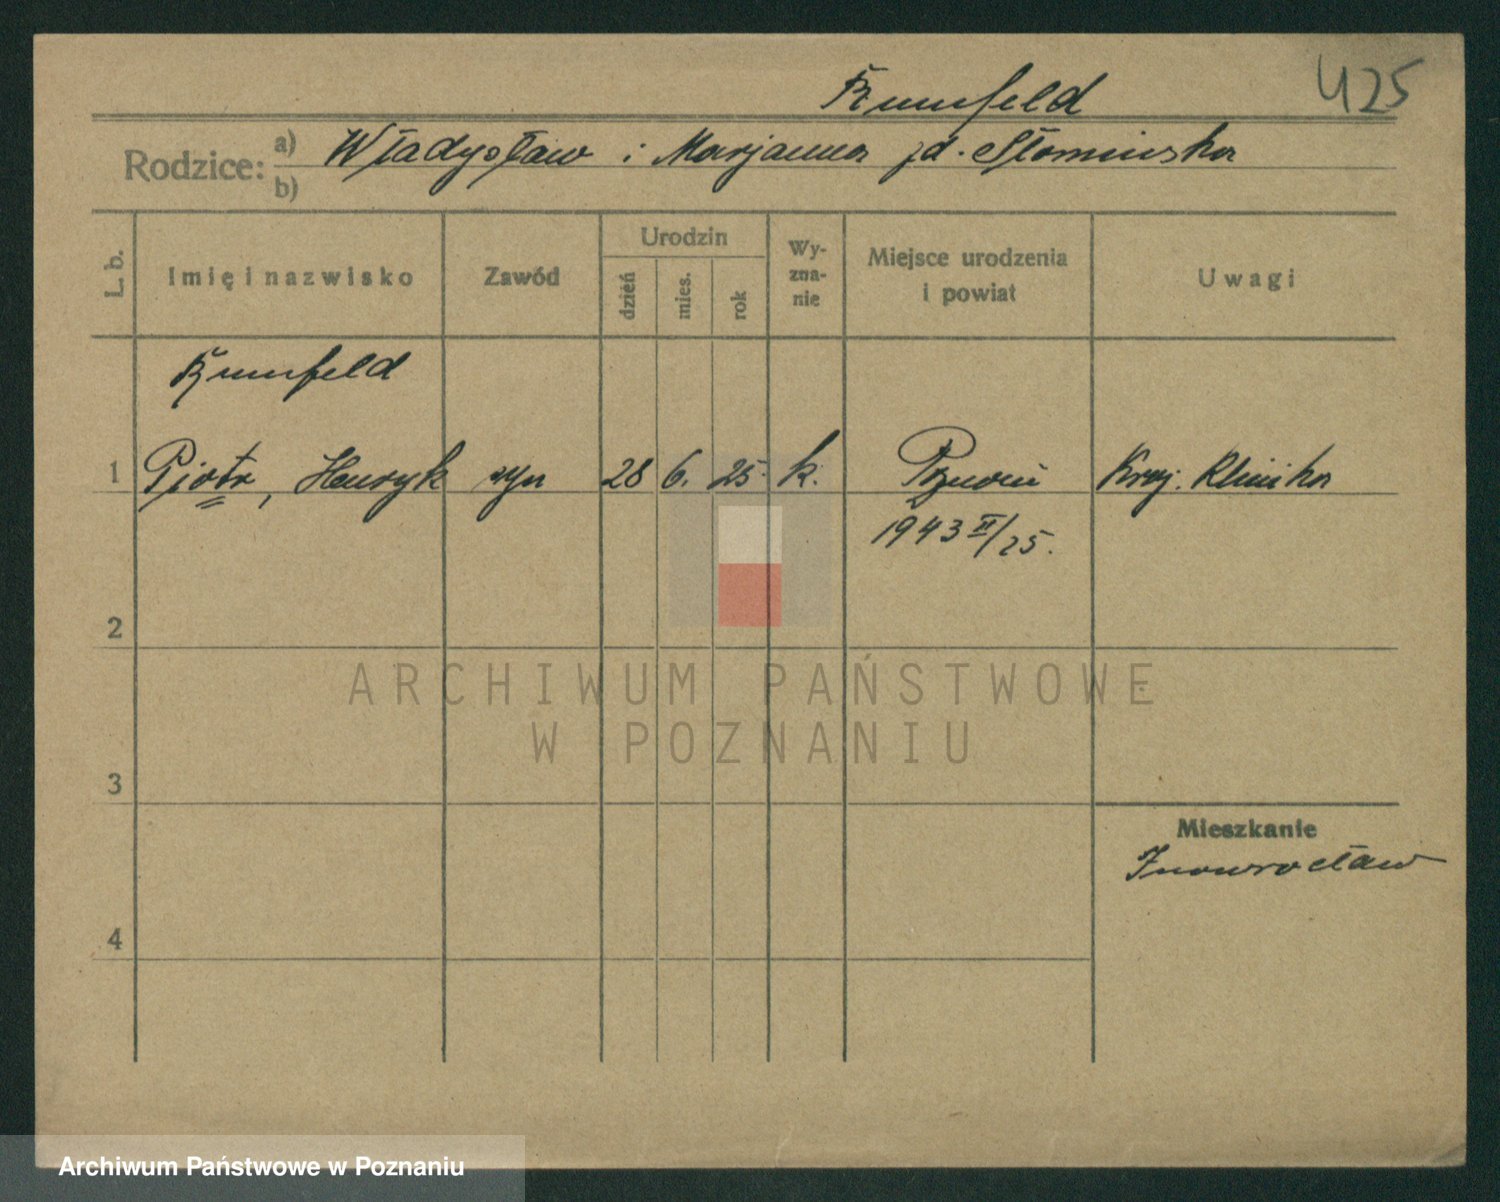 425
Rumfeld
Rodzice: a) Władysław i Marjanna zd. Słomińska
b)
L. b.
Imię i nazwisko
Zawód
Urodzin
dzień
mies.
rok
Wy-
zna-
nie
Miejsce urodzenia
i powiat
Uwagi
Rumfeld
1 Piotr, Henryk syn 28 6. 25. k. Poznań Kraj. Klinika
1943 II/25.
2
3
4
Mieszkanie
Inowrocław
ARCHIWUM PAŃSTWOWE
W POZNANIU
Archiwum Państwowe w Poznaniu